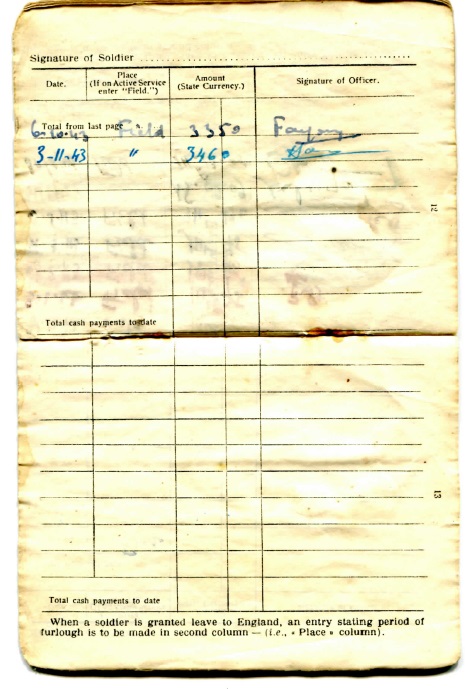 Signature of Soldier
Date.
Place
(If on Active Service
enter "Field.")
Amount
(State Currency.)
Signature of Officer.
Total from last page
6-10-43 Field 3350
3-11-43 " 3460
12
Total cash payments to date
13
Total cash payments to date
When a soldier is granted leave to England, an entry stating period of
furlough is to be made in second column — (i.e., « Place » column).